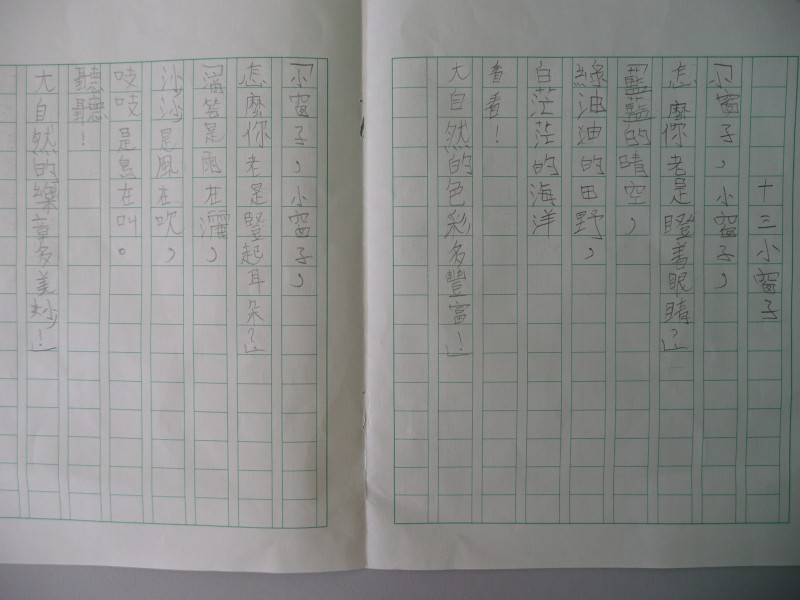 十三小窗子
「小窗子，小窗子，
怎麼你老是瞪著眼睛？」
「藍藍的晴空，
綠油油的田野，
白茫茫的海洋
看看！
大自然的色彩多豐富！」
「小窗子，小窗子，
怎麼你老是豎起耳朵？」
「滴答是雨在灑，
沙沙是風在吹，
吱吱是鳥在叫。
聽聽！
大自然的樂章多美妙！」